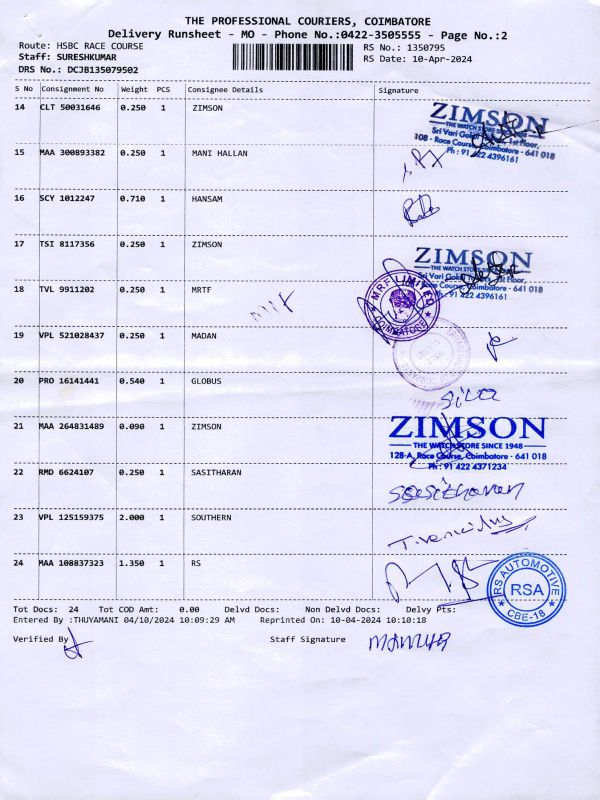 THE PROFESSIONAL COURIERS, COIMBATORE
Delivery Runsheet - MO - Phone No.:0422-3505555 - Page No.:2
Route: HSBC RACE COURSE RS No.: 1350795
Staff: SURESHKUMAR RS Date: 10-Apr-2024
DRS No.: DCJB135079502
S No Consignment No Weight PCS Consignee Details Signature
14 CLT 50031646 0.250 1 ZIMSON
ZIMSON
THE WATCH STORE
Sri Vari Gokul 1st Floor,
108 - Race Course, Coimbatore - 641 018
Ph : 91 422 4396161
15 MAA 300893382 0.250 1 MANI HALLAN
16 SCY 1012247 0.710 1 HANSAM
17 TSI 8117356 0.250 1 ZIMSON
ZIMSON
THE WATCH STORE
Sri Vari Gokul 1st Floor,
Race Course, Coimbatore - 641 018
91 422 4396161
18 TVL 9911202 0.250 1 MRTF
MRF LIMITED
COIMBATORE
19 VPL 521028437 0.250 1 MADAN
20 PRO 16141441 0.540 1 GLOBUS
Siva
21 MAA 264831489 0.090 1 ZIMSON
ZIMSON
THE WATCH STORE SINCE 1948
128-A, Race Course, Coimbatore - 641 018
Ph : 91 422 4371234
22 RMD 6624107 0.250 1 SASITHARAN
Sasitharan
23 VPL 125159375 2.000 1 SOUTHERN
24 MAA 108837323 1.350 1 RS
RS AUTOMOTIVE
RSA
CBE-18
Tot Docs: 24 Tot COD Amt: 0.00 Delvd Docs: Non Delvd Docs: Delvy Pts:
Entered By :THUYAMANI 04/10/2024 10:09:29 AM Reprinted On: 10-04-2024 10:10:18
Verified By Staff Signature